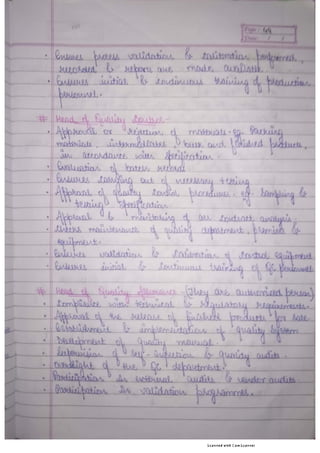 Page: 44
Date: / /
• Ensures process validation & calibration performed,
recorded & reports are made available.
• Ensures initial & continuous training of production
personnel.
# Head of Quality Control-
• Approval or rejection of materials eg. Packing
materials, intermediates, bulk and finished products,
in accordance with specification.
• Evaluation of batch record
• Ensures carrying out of necessary testing
• Approval of quality control procedures. eg. Sampling &
testing specification
• Approval & monitoring of all contract analysis.
• maintenance of quality department, premises &
equipment.
• Ensures validation & calibration of control equipment
• Ensures initial & continuous training of QC personnel
# Head of Quality Assurance (They are authorized person)
• Compliance with technical & regulatory requirements.
• Approval of the release of finished products for sale
• Establishment & implementation of quality system
• Development of quality manual.
• Supervision of self-inspection & quality audits.
• Oversight of the QC department.
• Participation in external audits & vendor audits
• Participation in validation programmes.
Scanned with CamScanner